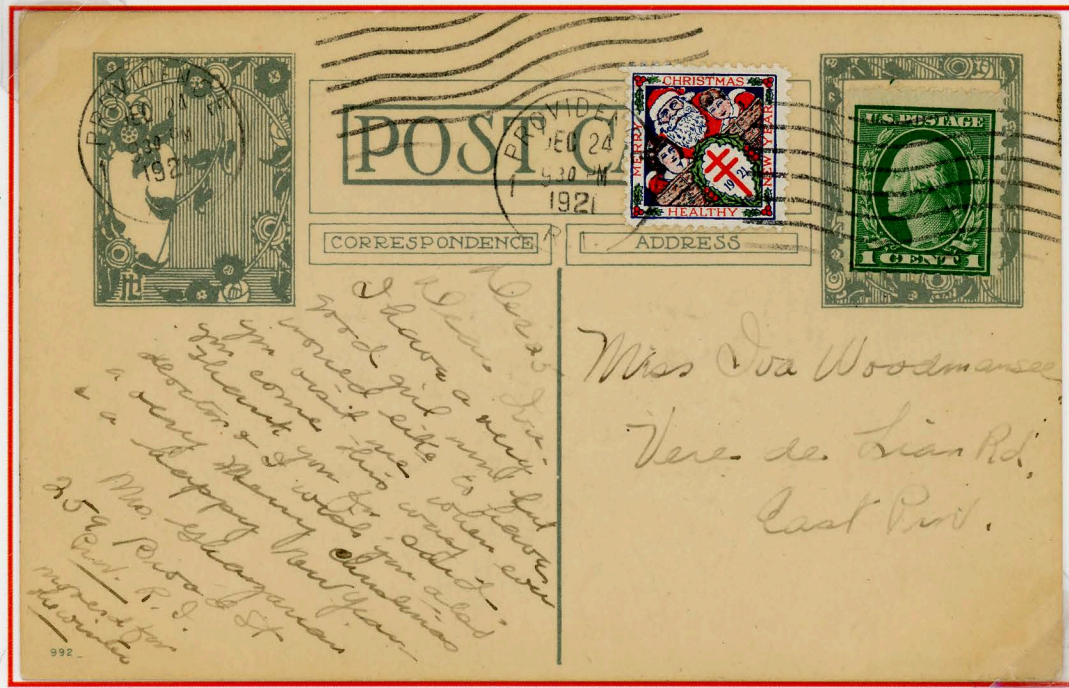 PROVIDENCE
DEC 24
930 PM
1921
1
POST C
PROVIDEN
DEC 24
930 M
1921
R
1
MERRY
CHRISTMAS
NEW YEAR
HEALTHY
1921
U.S. POSTAGE
1 CENT 1
CORRESPONDENCE
ADDRESS
Dec 23
Dear Iva-
I have a very
good girl now but
would like to have
you visit me when ever
you come this way
Thank you for card-
Doctor & I wish you also
a very Merry Christmas
& a happy New Year
Mrs.
259 Broad St
Prov. R. I.
moved for
the winter
Miss Iva Woodmansee
Vere de Rd.
East Prov.
992